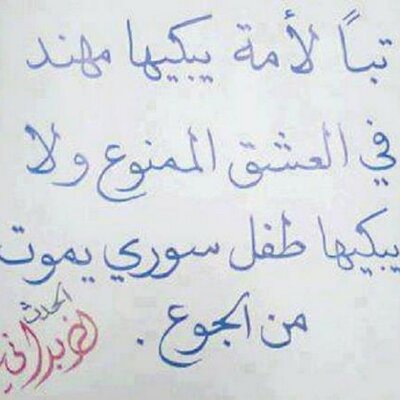 تباً لأمة يبكيها مهند
في العشق الممنوع ولا
يبكيها طفل سوري يموت
من الجوع .
الحدث
الزبداني